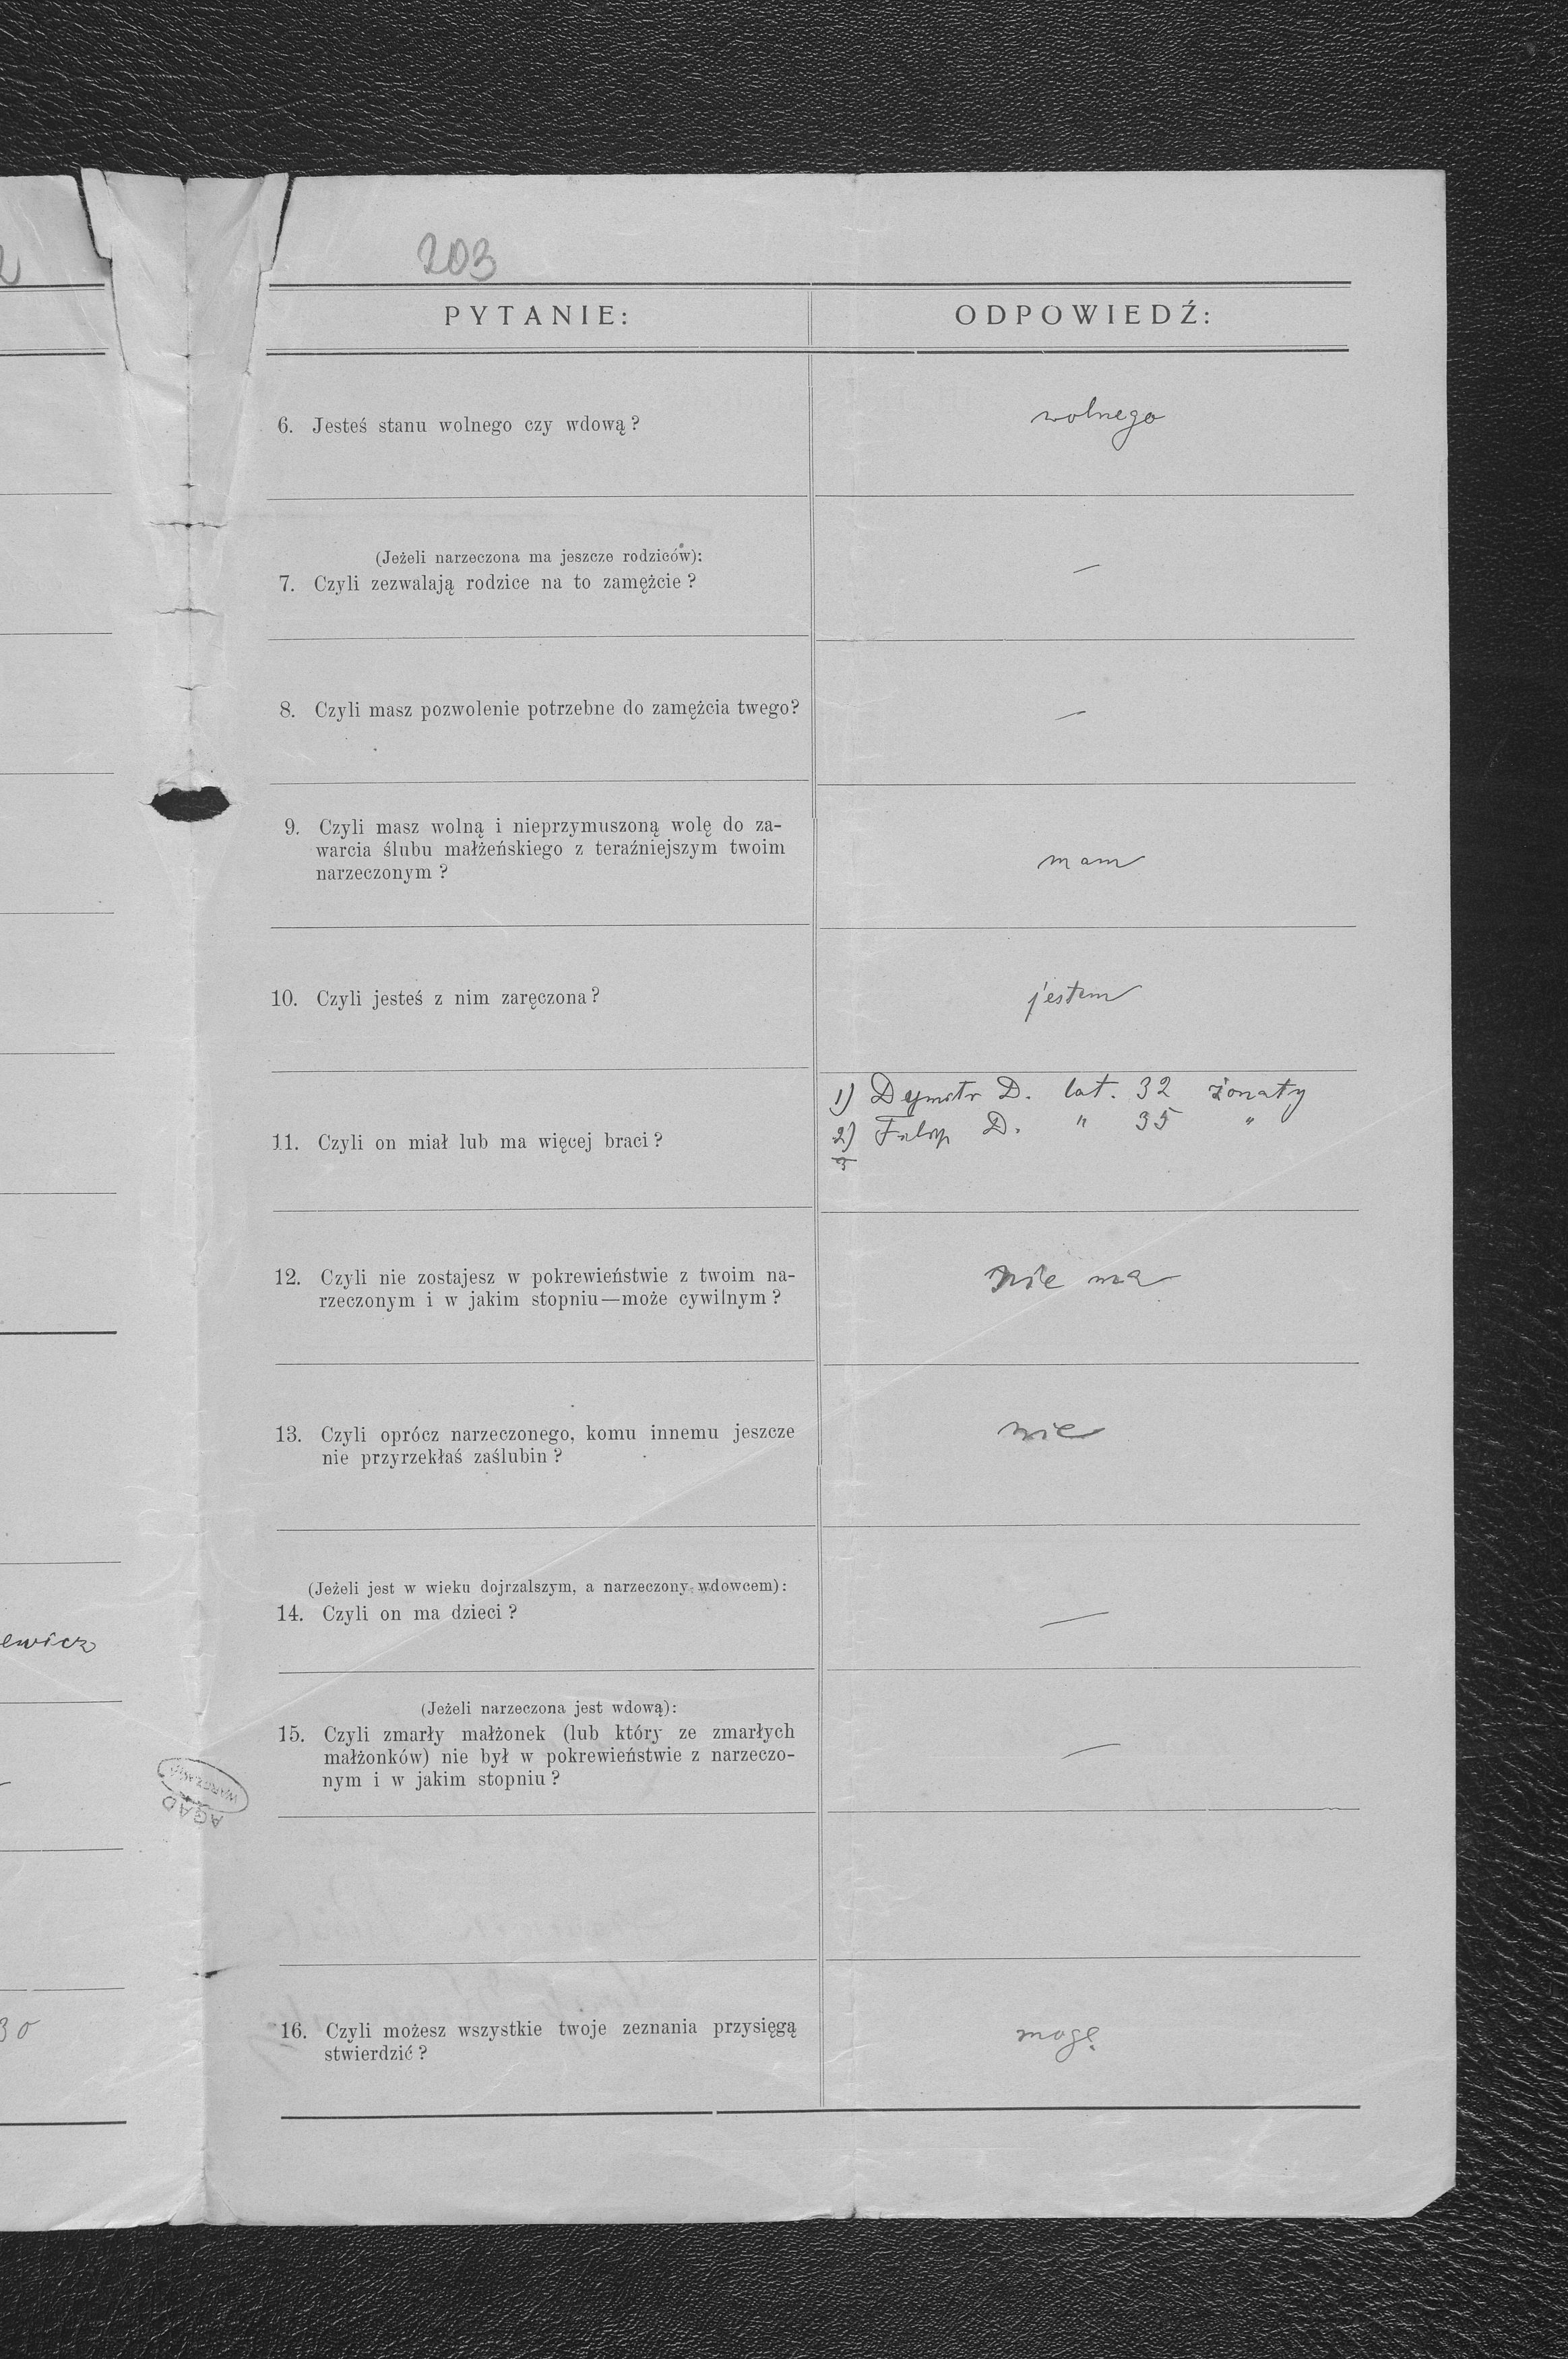 203
PYTANIE:
ODPOWIEDŹ:
6. Jesteś stanu wolnego czy wdową?
wolnego
(Jeżeli narzeczona ma jeszcze rodziców):
7. Czyli zezwalają rodzice na to zamężcie?
—
8. Czyli masz pozwolenie potrzebne do zamężcia twego?
—
9. Czyli masz wolną i nieprzymuszoną wolę do za-
warcia ślubu małżeńskiego z teraźniejszym twoim
narzeczonym?
mam
10. Czyli jesteś z nim zaręczona?
jestem
11. Czyli on miał lub ma więcej braci?
1) Dymitr D. lat. 32 żonaty
2) Filip D. " 35 "
12. Czyli nie zostajesz w pokrewieństwie z twoim na-
rzeczonym i w jakim stopniu—może cywilnym?
nie ma
13. Czyli oprócz narzeczonego, komu innemu jeszcze
nie przyrzekłaś zaślubin?
nie
(Jeżeli jest w wieku dojrzalszym, a narzeczony wdowcem):
14. Czyli on ma dzieci?
—
(Jeżeli narzeczona jest wdową):
15. Czyli zmarły małżonek (lub który ze zmarłych
małżonków) nie był w pokrewieństwie z narzeczo-
nym i w jakim stopniu?
—
16. Czyli możesz wszystkie twoje zeznania przysięgą
stwierdzić?
mogę
ewicz
30
AGAD
WARSZAWA